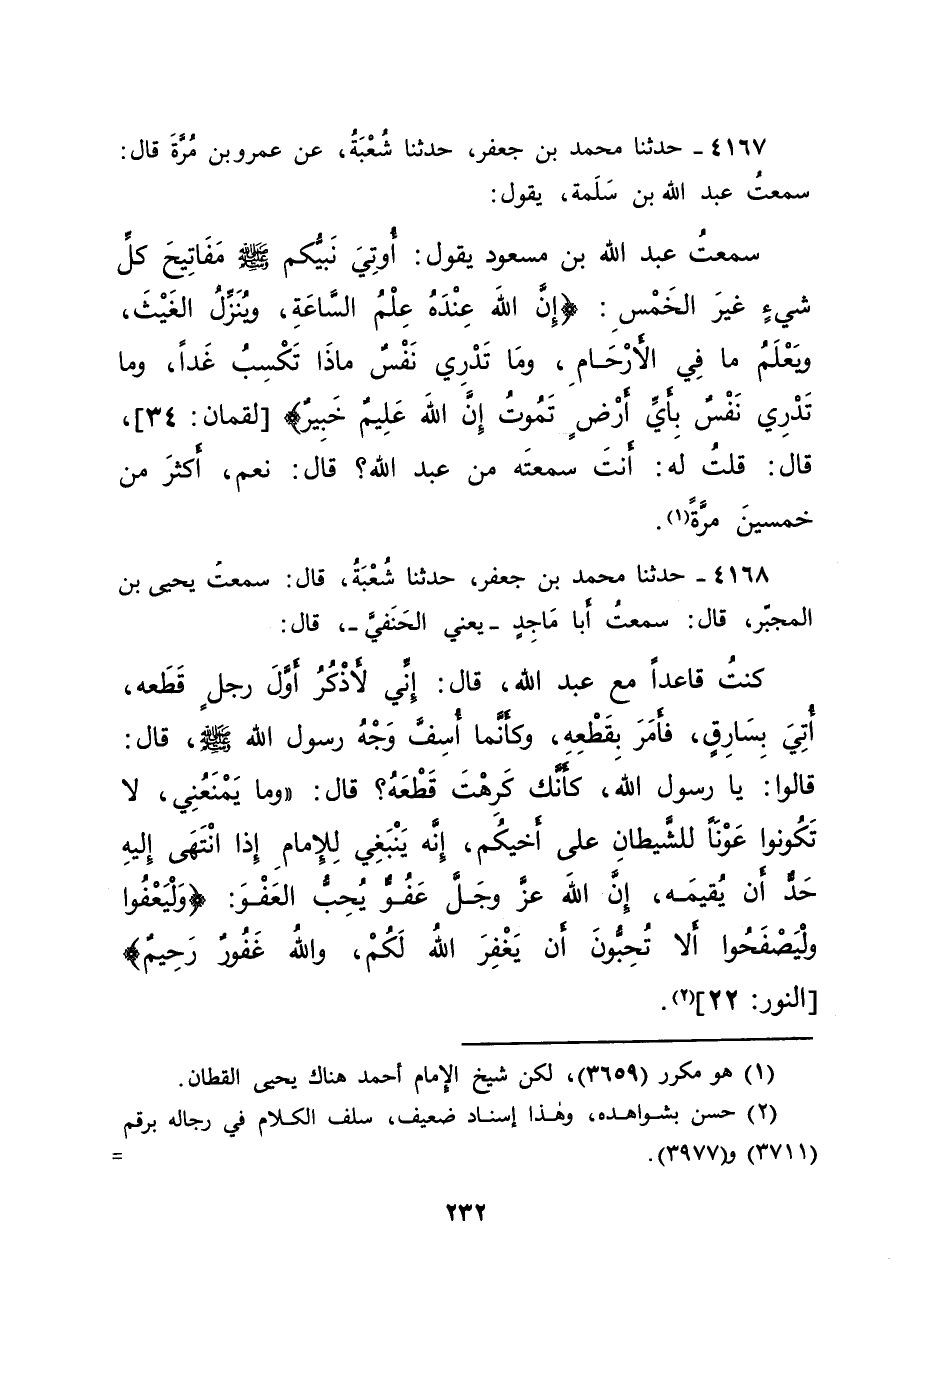 ٤١٦٧ ـ حدثنا محمد بن جعفر، حدثنا شُعْبَةُ، عن عمرو بن مُرَّةَ قال:
سمعتُ عبد الله بن سَلَمة، يقول:
سمعتُ عبد الله بن مسعود يقول: أُوتِيَ نَبيُّكم ﷺ مَفَاتِيحَ كلِّ
شيءٍ غيرَ الخَمْسِ: ﴿إِنَّ اللهَ عِنْدَهُ عِلْمُ السَّاعَةِ، ويُنَزِّلُ الغَيْثَ،
ويَعْلَمُ ما فِي الأَرْحَامِ، ومَا تَدْرِي نَفْسٌ ماذَا تَكْسِبُ غَداً، وما
تَدْرِي نَفْسٌ بِأَيِّ أَرْضٍ تَمُوتُ إِنَّ اللهَ عَلِيمٌ خَبِيرٌ﴾ [لقمان: ٣٤]،
قال: قلتُ له: أَنتَ سمعتَه من عبد الله؟ قال: نعم، أَكثرَ من
خمسينَ مرَّةً(١).
٤١٦٨ ـ حدثنا محمد بن جعفر، حدثنا شُعْبَةُ، قال: سمعتُ يحيى بن
المجبّر، قال: سمعتُ أَبا مَاجِدٍ ـ يعني الحَنَفيَّ ـ، قال:
كنتُ قاعداً مع عبد الله، قال: إِنِّي لَأَذْكُرُ أَوَّلَ رجلٍ قَطَعه،
أُتِيَ بِسَارِقٍ، فأَمَرَ بِقَطْعِهِ، وكأَنَّما أُسِفَّ وَجْهُ رسول الله ﷺ، قال:
قالوا: يا رسول الله، كأَنَّك كَرِهْتَ قَطْعَهُ؟ قال: «وما يَمْنَعُنِي، لا
تَكُونوا عَوْنَاً للشَّيطانِ على أَخيكُم، إِنَّه يَنْبَغِي لِلإمامِ إِذا انْتَهَى إِليهِ
حَدٌّ أَن يُقيمَـه، إِنَّ اللهَ عزَّ وجَـلَّ عَفُـوٌّ يُحِبُّ العَفْـوَ: ﴿وَلْيَعْفُوا
ولْيَصْفَحُوا أَلا تُحِبُّونَ أَن يَغْفِرَ اللهُ لَكُمْ، واللهُ غَفُورٌ رَحِيمٌ﴾
[النور: ٢٢](٢).
(١) هو مكرر (٣٦٥٩)، لكن شيخ الإمام أحمد هناك يحيى القطان.
(٢) حسن بشـواهده، وهٰذا إسنـاد ضعيف، سلف الكـلام في رجاله برقم
(٣٧١١) و(٣٩٧٧). =
٢٣٢